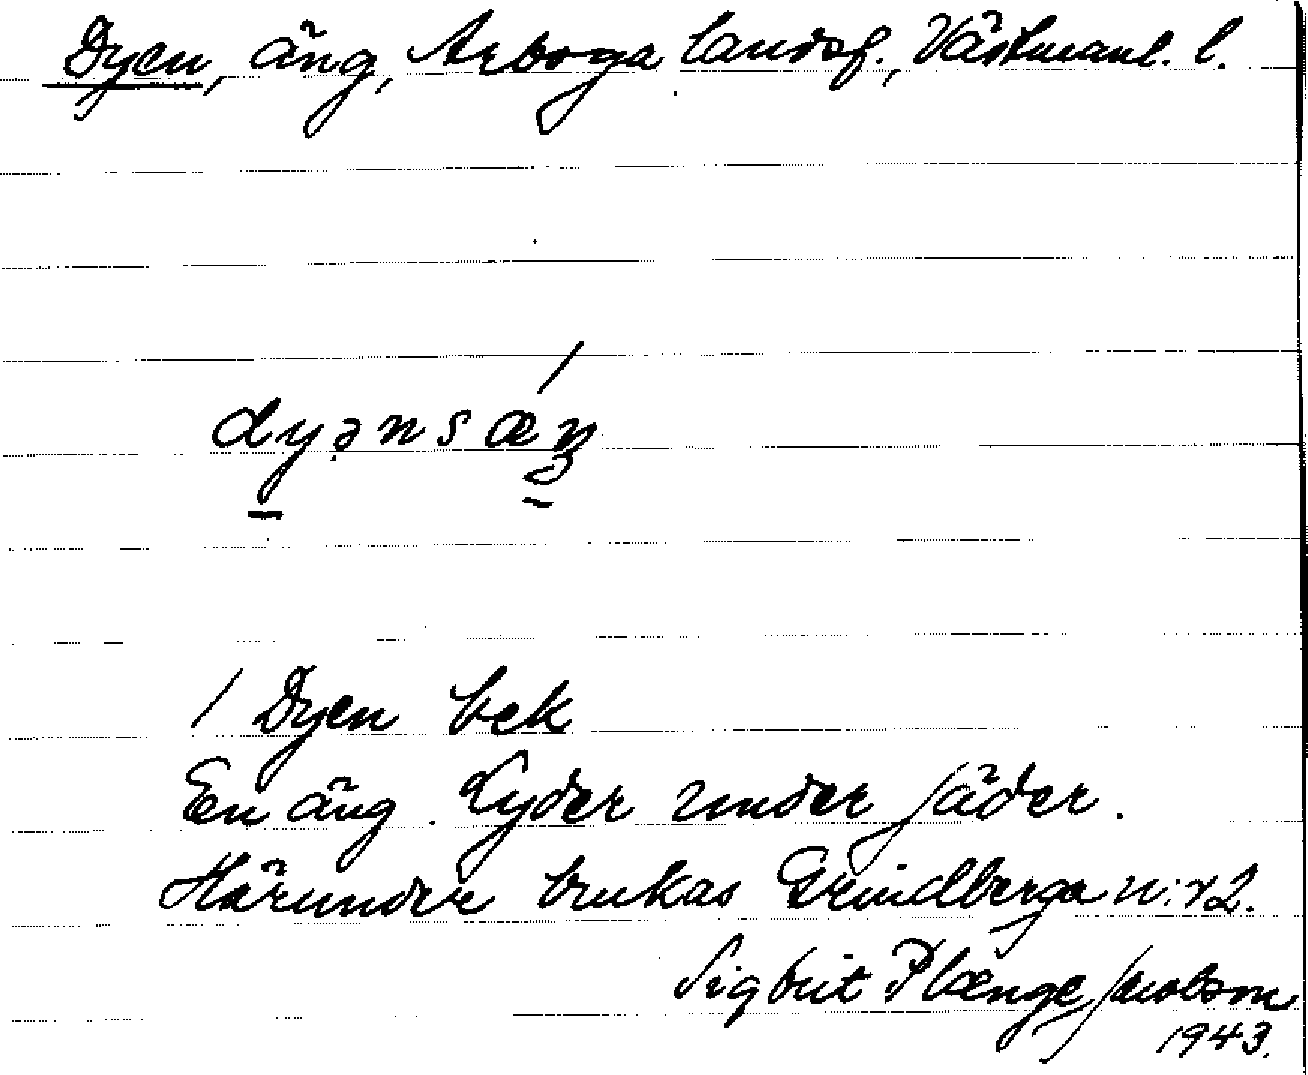 Dyen, äng, Arboga landsf., Västmanl. l.
dyənsæŋ
/ Dyen bek
En äng. Lyder under Jäder.
Härunder brukas Grindberga n:r 2.
Sigbrit Plænge Jacobson
1943.